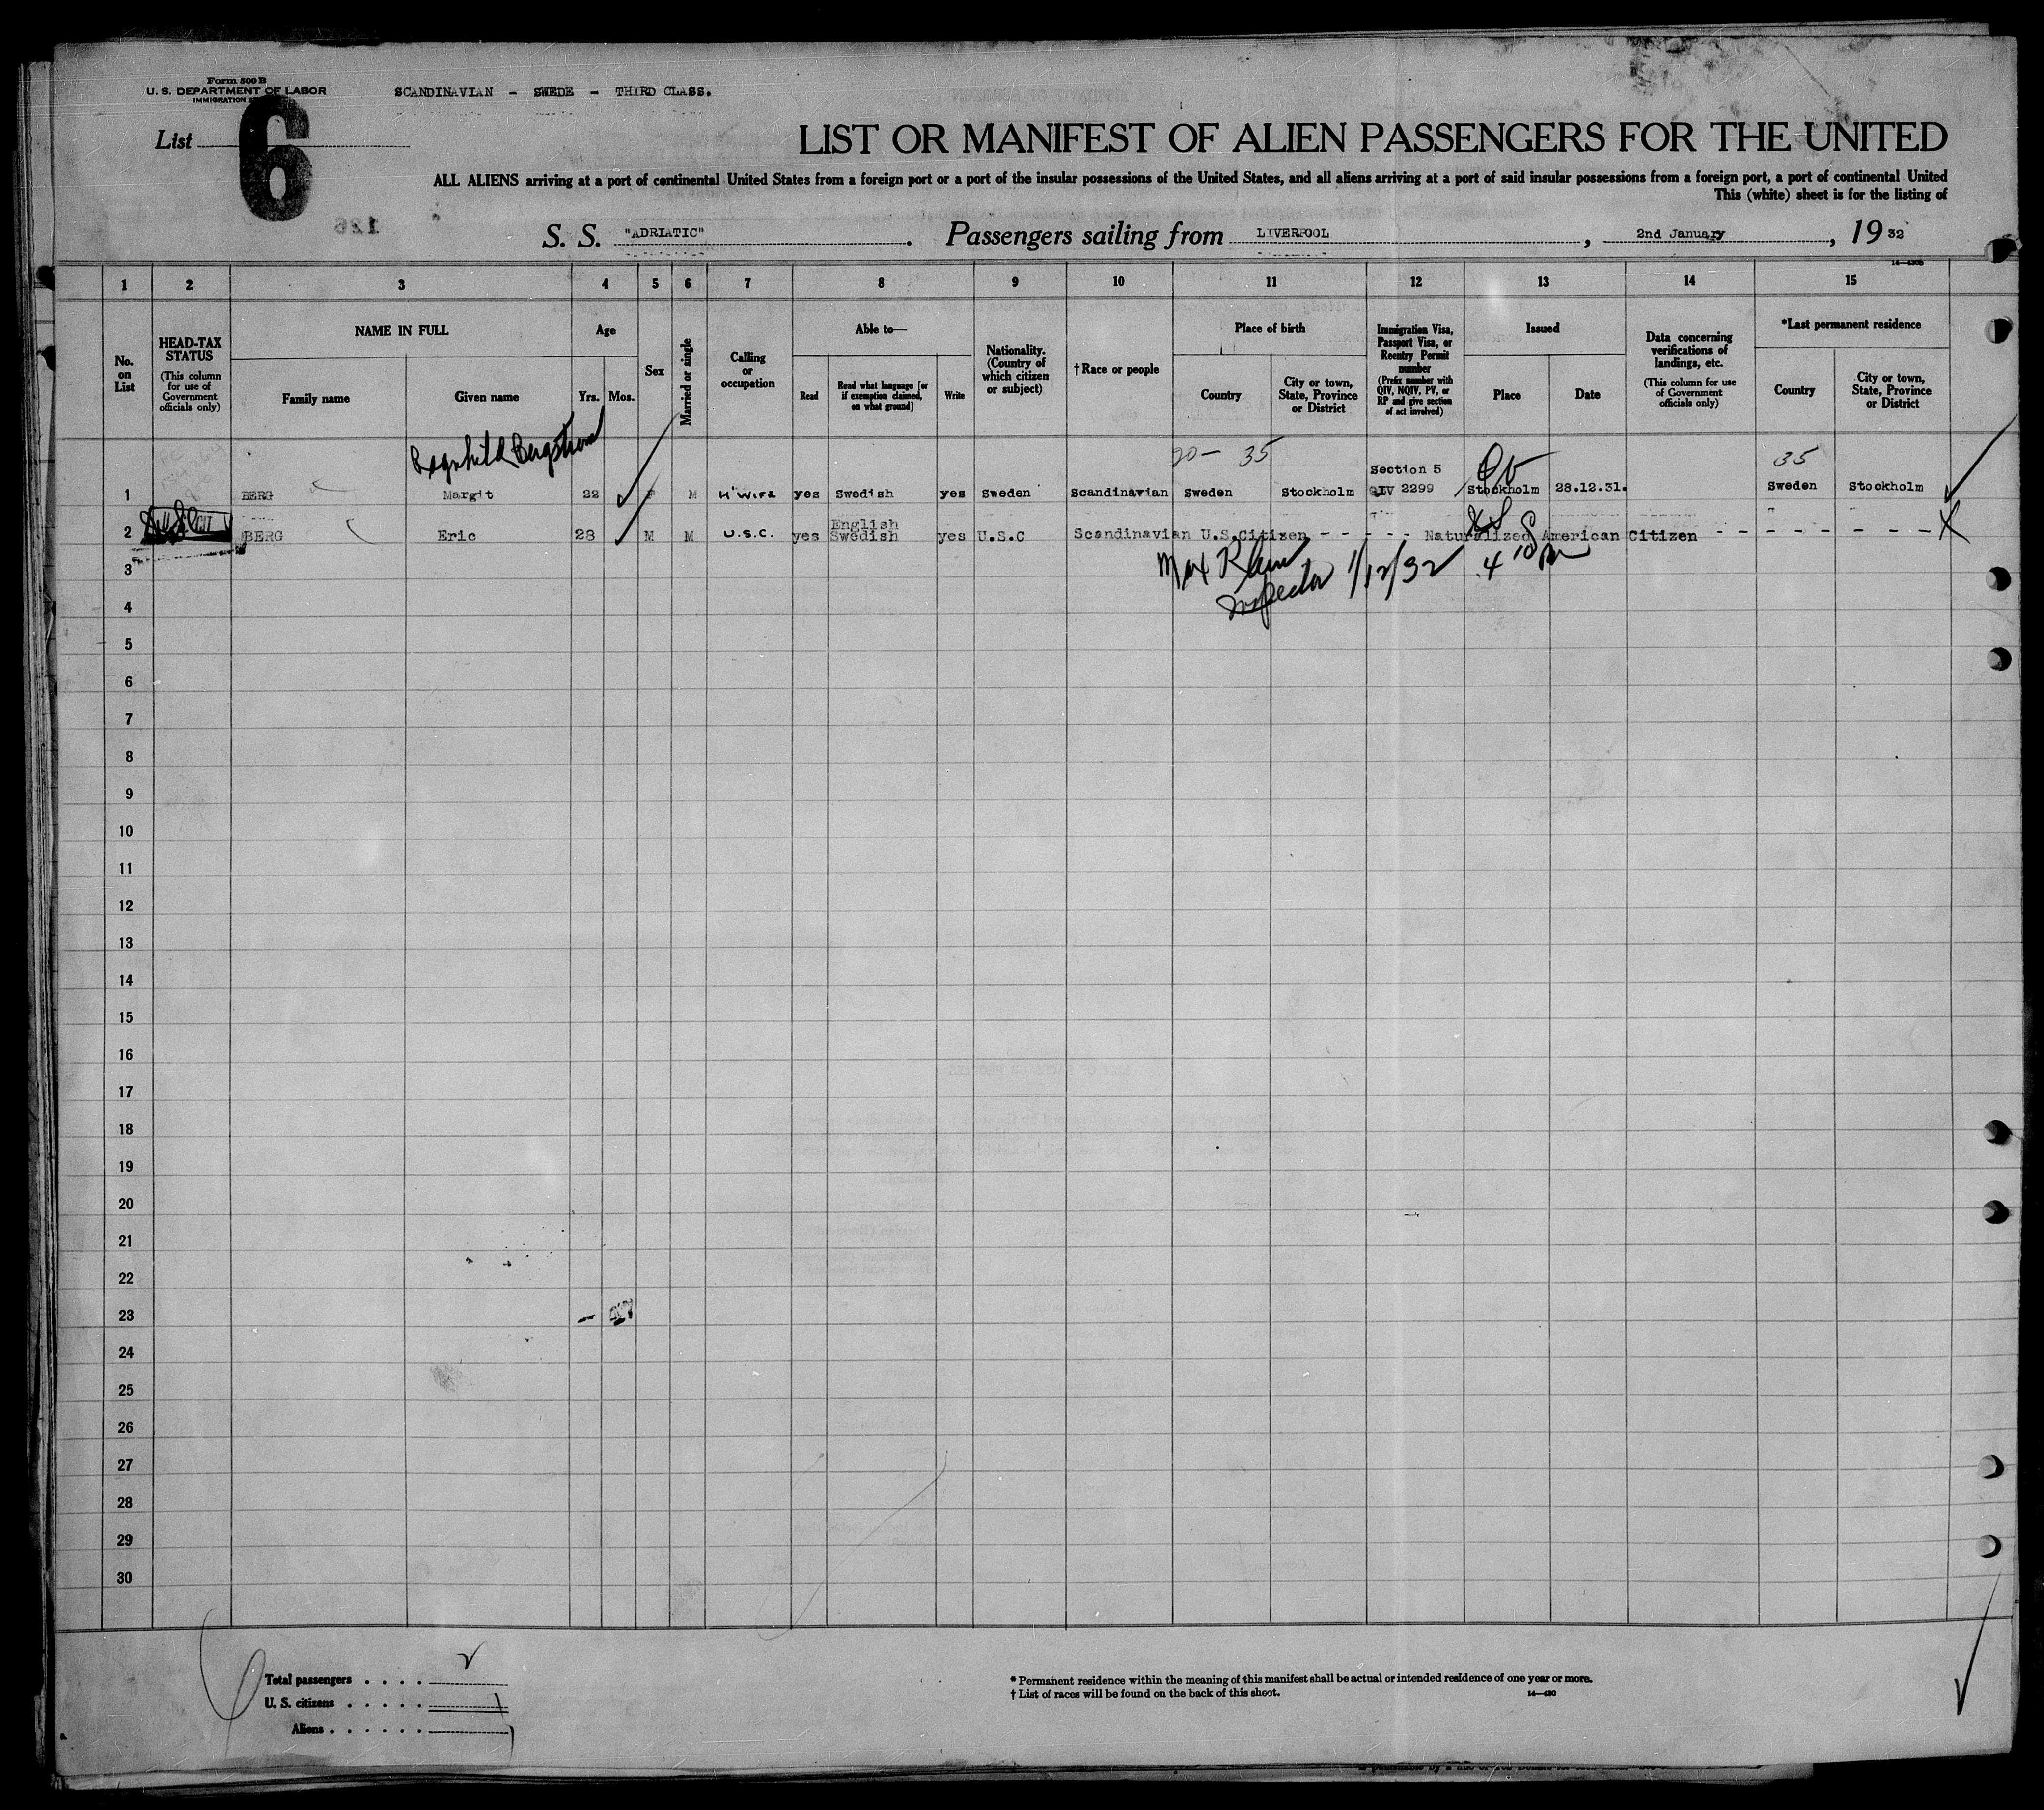 Form 500 B
U. S. DEPARTMENT OF LABOR
IMMIGRATION
SCANDINAVIAN - SWEDE - THIRD CLASS.
List 6
LIST OR MANIFEST OF ALIEN PASSENGERS FOR THE UNITED
ALL ALIENS arriving at a port of continental United States from a foreign port or a port of the insular possessions of the United States, and all aliens arriving at a port of said insular possessions from a foreign port, a port of continental United
This (white) sheet is for the listing of
126
S. S. "ADRIATIC". Passengers sailing from LIVERPOOL, 2nd January, 1932
1 2 3 4 5 6 7 8 9 10 11 12 13 14 15
No. on List
HEAD-TAX STATUS
(This column for use of Government officials only)
NAME IN FULL
Family name
Given name
Age
Yrs. Mos.
Sex
Married or single
Calling or occupation
Able to—
Read
Read what language [or if exemption claimed, on what ground]
Write
Nationality. (Country of which citizen or subject)
†Race or people
Place of birth
Country
City or town, State, Province or District
Immigration Visa, Passport Visa, or Reentry Permit number
(Prefix number with QIV, NQIV, PV, or RP and give section of act involved)
Issued
Place
Date
Data concerning verifications of landings, etc.
(This column for use of Government officials only)
*Last permanent residence
Country
City or town, State, Province or District
Ragnhild Bergstrom
20- 35
Section 5
35
1 BERG Margit 22 F M H'WIFE yes Swedish yes Sweden Scandinavian Sweden Stockholm QIV 2299 Stockholm 28.12.31. Sweden Stockholm
English
2 BERG Eric 28 M M U.S.C. yes Swedish yes U.S.C Scandinavian U.S.Citizen - - - - - Naturalized American Citizen - - - - - - - - X
Max
Inspector 1/12/32
3
4
5
6
7
8
9
10
11
12
13
14
15
16
17
18
19
20
21
22
23
24
25
26
27
28
29
30
Total passengers . . . . 2
U. S. citizens . . . . . 1
Aliens . . . . . . 1
* Permanent residence within the meaning of this manifest shall be actual or intended residence of one year or more.
† List of races will be found on the back of this sheet.
14—430